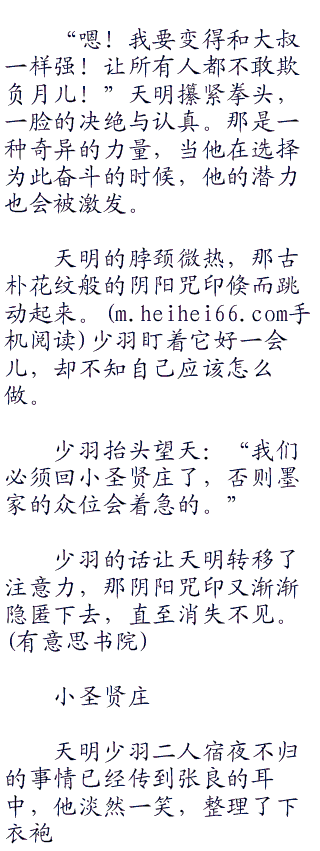 “嗯！我要变得和大叔
一样强！让所有人都不敢欺
负月儿！”天明攥紧拳头，
一脸的决绝与认真。那是一
种奇异的力量，当他在选择
为此奋斗的时候，他的潜力
也会被激发。
天明的脖颈微热，那古
朴花纹般的阴阳咒印倏而跳
动起来。(m.heihei66.com手
机阅读)少羽盯着它好一会
儿，却不知自己应该怎么
做。
少羽抬头望天：“我们
必须回小圣贤庄了，否则墨
家的众位会着急的。”
少羽的话让天明转移了
注意力，那阴阳咒印又渐渐
隐匿下去，直至消失不见。
(有意思书院)
小圣贤庄
天明少羽二人宿夜不归
的事情已经传到张良的耳
中，他淡然一笑，整理了下
衣袍